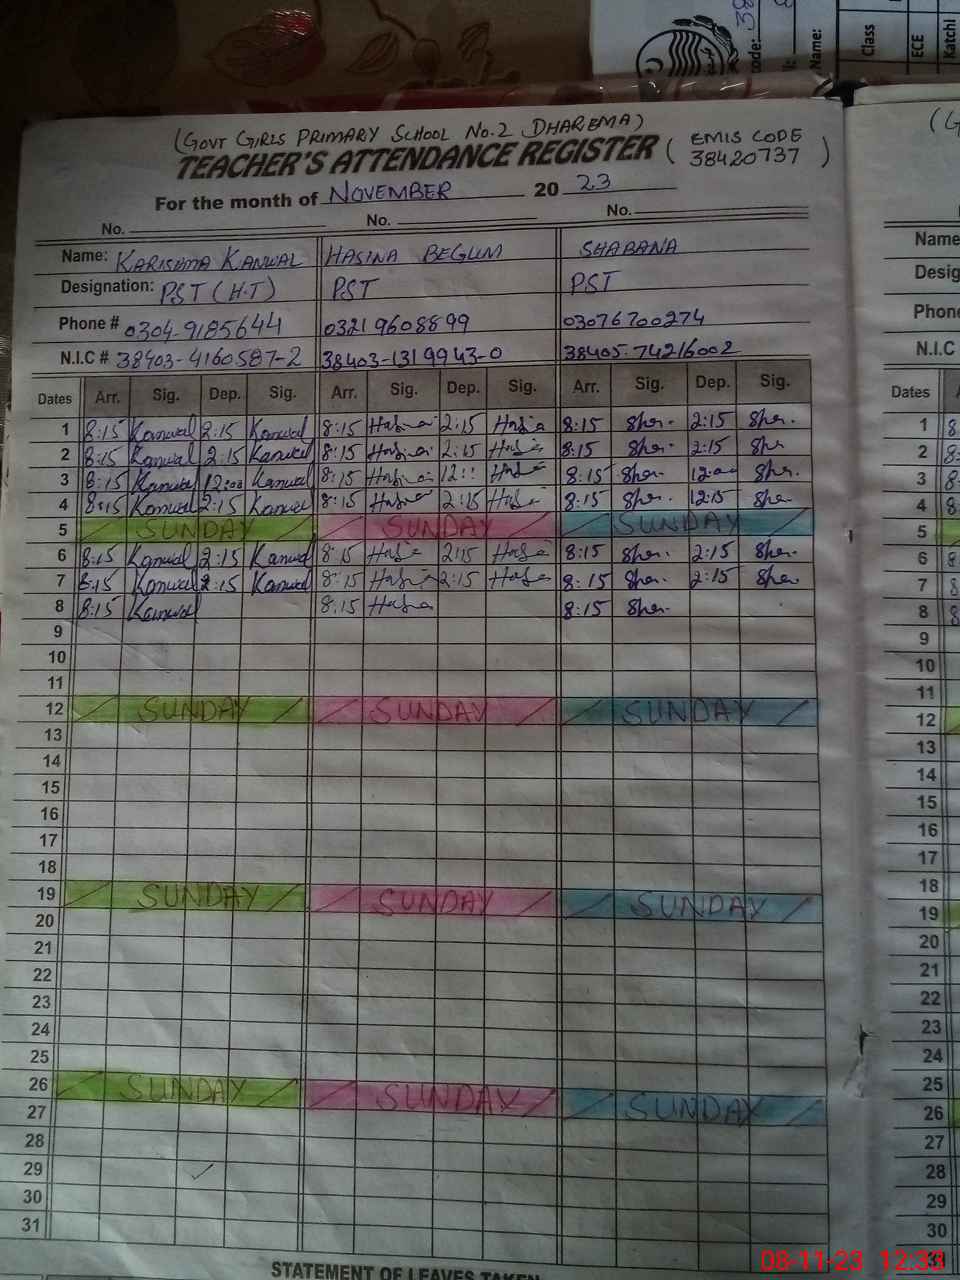 code: 38
Name:
Class
ECE
Katchi
(GOVT GIRLS PRIMARY SCHOOL NO.2 DHAREMA)
TEACHER'S ATTENDANCE REGISTER (EMIS CODE 38420737)
For the month of NOVEMBER 20 23
No. No. No.
Name: KARISHMA KANWAL HASINA BEGUM SHABANA
Designation: PST (H.T) PST PST
Phone # 0304-9185644 03219608899 03076700274
N.I.C # 38403-4160587-2 38403-1319943-0 38405-74216002
Dates Arr. Sig. Dep. Sig. Arr. Sig. Dep. Sig. Arr. Sig. Dep. Sig.
1 8:15 Kanwal 2:15 Kanwal 8:15 Hasina 2:15 Hasina 8:15 Sher. 2:15 Sher.
2 8:15 Kanwal 2:15 Kanwal 8:15 Hasina 2:15 Hasina 8:15 Sher. 2:15 Sher
3 8:15 Kanwal 12:00 Kanwal 8:15 Hasina 12:: Hasina 8:15 Sher. 12:00 Sher.
4 8:15 Kanwal 2:15 Kanwal 8:15 Hasina 2:15 Hasina 8:15 Sher. 12:15 Sher
5 SUNDAY SUNDAY SUNDAY
6 8:15 Kanwal 2:15 Kanwal 8:15 Hasina 2:15 Hasina 8:15 Sher. 2:15 Sher.
7 8:15 Kanwal 2:15 Kanwal 8:15 Hasina 2:15 Hasina 8:15 Sher. 2:15 Sher
8 8:15 Kanwal 8:15 Hasina 8:15 Sher.
9
10
11
12 SUNDAY SUNDAY SUNDAY
13
14
15
16
17
18
19 SUNDAY SUNDAY SUNDAY
20
21
22
23
24
25
26 SUNDAY SUNDAY SUNDAY
27
28
29
30
31
STATEMENT OF LEAVES TAKEN
(G
Name
Desig
Phone
N.I.C
Dates
1 8
2 8
3 8
4 8
5
6 8
7 8
8 8
9
10
11
12
13
14
15
16
17
18
19
20
21
22
23
24
25
26
27
28
29
30
31
08-11-23 12:33